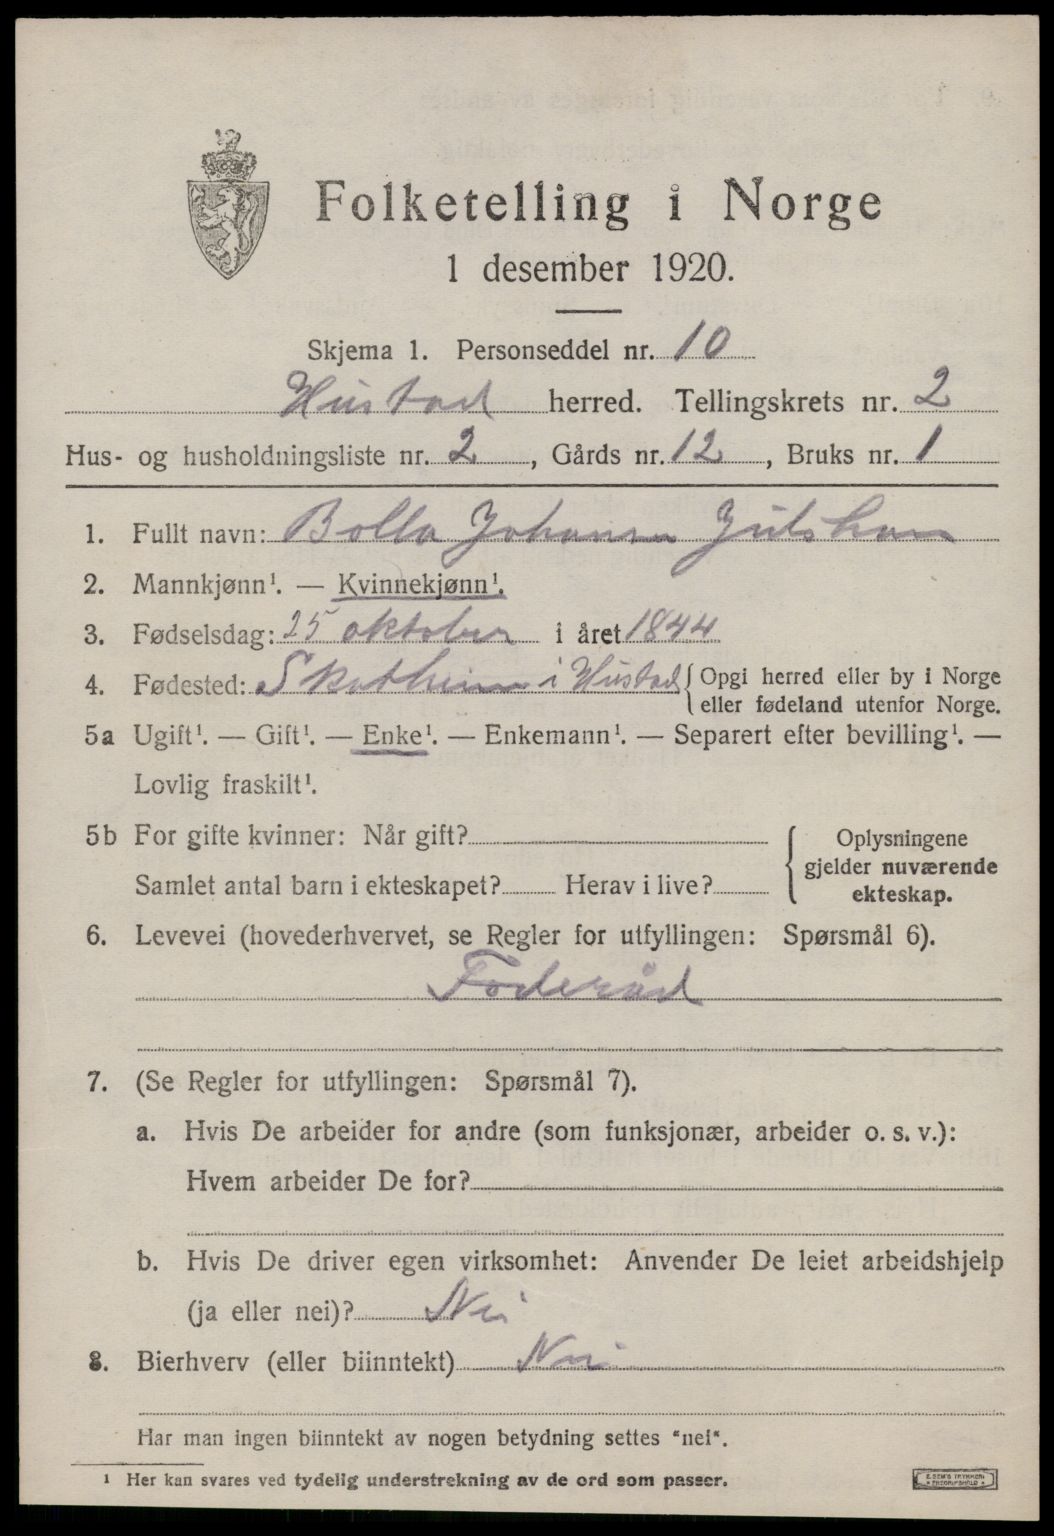 Folketelling i Norge
1 desember 1920.
Skjema 1. Personseddel nr. 10
Hustad herred. Tellingskrets nr. 2
Hus- og husholdningsliste nr. 2, Gårds nr. 12, Bruks nr. 1
1. Fullt navn: Bolla Johansen
2. Mannkjønn¹. — Kvinnekjønn¹.
3. Fødselsdag: 25 oktober i året 1844
4. Fødested: i Hustad { Opgi herred eller by i Norge
eller fødeland utenfor Norge.
5a Ugift¹. — Gift¹. — Enke¹. — Enkemann¹. — Separert efter bevilling¹. —
Lovlig fraskilt¹.
5b For gifte kvinner: Når gift?
Samlet antal barn i ekteskapet? Herav i live?
Oplysningene
gjelder nuværende
ekteskap.
6. Levevei (hovederhvervet, se Regler for utfyllingen: Spørsmål 6).
Foderåd
7. (Se Regler for utfyllingen: Spørsmål 7).
a. Hvis De arbeider for andre (som funksjonær, arbeider o. s. v.):
Hvem arbeider De for?
b. Hvis De driver egen virksomhet: Anvender De leiet arbeidshjelp
(ja eller nei)? Nei
8. Bierhverv (eller biinntekt) Nei
Har man ingen biinntekt av nogen betydning settes "nei".
¹ Her kan svares ved tydelig understrekning av de ord som passer.